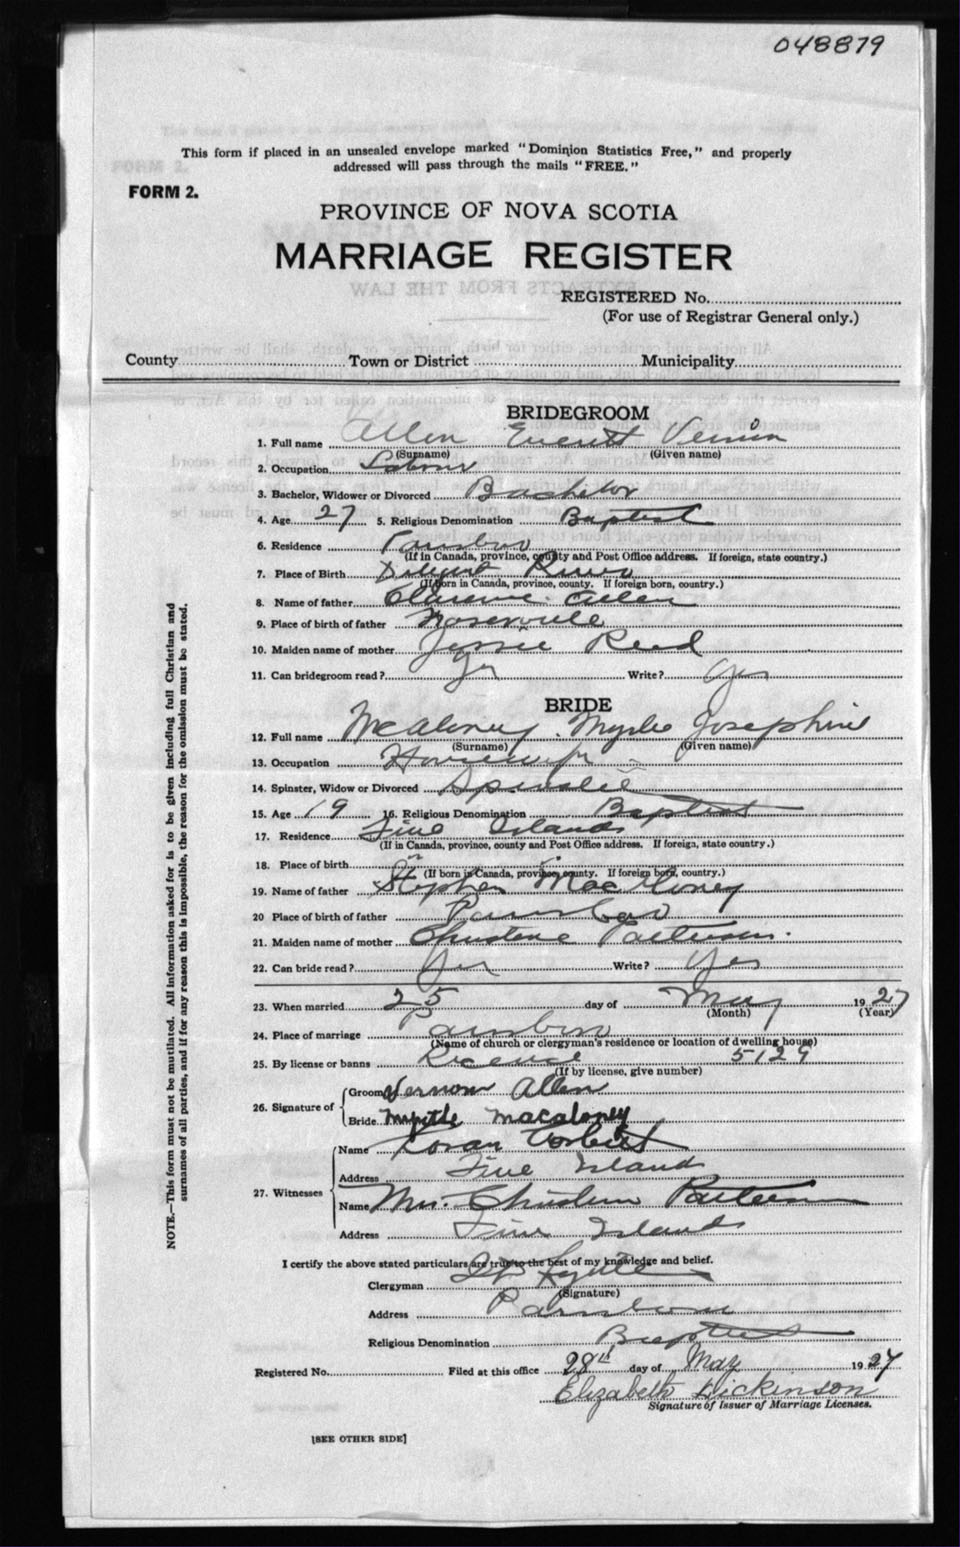 048879
This form if placed in an unsealed envelope marked "Dominion Statistics Free," and properly
addressed will pass through the mails "FREE."
FORM 2.
PROVINCE OF NOVA SCOTIA
MARRIAGE REGISTER
REGISTERED No.
(For use of Registrar General only.)
County Town or District Municipality
BRIDEGROOM
1. Full name Allen Everett Vernon
(Surname) (Given name)
2. Occupation Labourer
3. Bachelor, Widower or Divorced Bachelor
4. Age 27 5. Religious Denomination Baptist
6. Residence Parrsboro
(If in Canada, province, county and Post Office address. If foreign, state country.)
7. Place of Birth Diligent River
(If born in Canada, province, county. If foreign born, country.)
8. Name of father Clarence Allen
9. Place of birth of father
10. Maiden name of mother Jessie Reed
11. Can bridegroom read? Yes Write? Yes
BRIDE
12. Full name McAloney Myrtle Josephine
(Surname) (Given name)
13. Occupation Housewife
14. Spinster, Widow or Divorced Spinster
15. Age 19 16. Religious Denomination Baptist
17. Residence Five Islands
(If in Canada, province, county and Post Office address. If foreign, state country.)
18. Place of birth
(If born in Canada, province, county. If foreign born, country.)
19. Name of father Stephen MacAloney
20 Place of birth of father Parrsboro
21. Maiden name of mother Christene Patterson.
22. Can bride read? Yes Write? Yes
23. When married 25 day of May 1927
(Month) (Year)
24. Place of marriage Parrsboro
(Name of church or clergyman's residence or location of dwelling house)
25. By license or banns License 5129
(If by license, give number)
26. Signature of Groom Vernon Allen
Bride Myrtle Macaloney
27. Witnesses Name Loran Corbett
Address Five Island
Name Mrs. Patterson
Address Five Islands
I certify the above stated particulars are true to the best of my knowledge and belief.
Clergyman
(Signature)
Address Parrsboro
Religious Denomination Baptist
Registered No. Filed at this office 28th day of May 1927
Elizabeth Dickinson
Signature of Issuer of Marriage Licenses.
[SEE OTHER SIDE]
NOTE.—This form must not be mutilated. All information asked for is to be given including full Christian and
surnames of all parties, and if for any reason this is impossible, the reason for the omission must be stated.